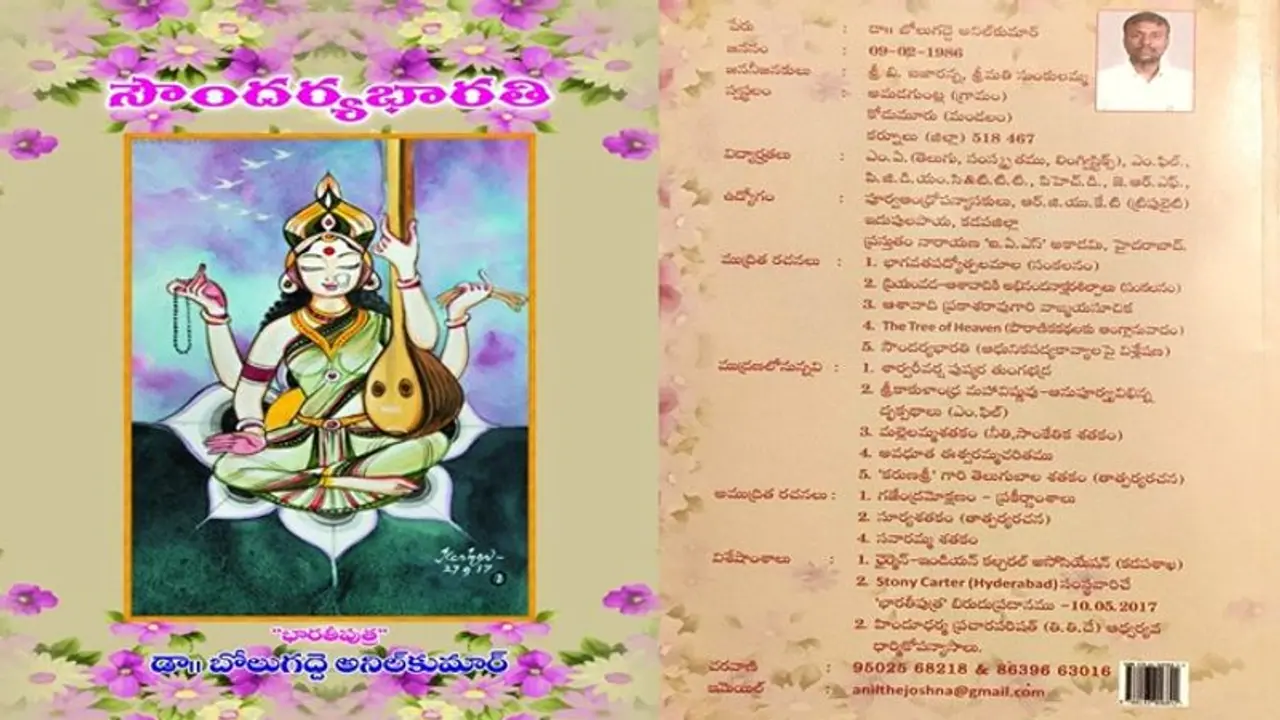 సౌందర్యభారతి
27 9 17
"భారతీపుత్ర"
డా॥ బోలుగద్దె అనిల్‌కుమార్
పేరు : డా॥ బోలుగద్దె అనిల్‌కుమార్
జననం : 09-02-1986
జననీజనకులు : శ్రీ వి. బజారన్న, శ్రీమతి సుంకులమ్మ
స్వస్థలం : అమడగుంట్ల (గ్రామం)
కోడుమూరు (మండలం)
కర్నూలు (జిల్లా) 518 467
విద్యార్హతలు : ఎం.ఏ.(తెలుగు, సంస్కృతము, లింగ్విస్టిక్స్), ఎం.ఫిల్.,
పి.జి.డి.యం.సి&టి.టి.టి., పిహెచ్.డి., జె.ఆర్.ఎఫ్.,
ఉద్యోగం : పూర్వఆంధ్రోపన్యాసకులు, ఆర్.జి.యు.కే.టి (ట్రిపుల్ఐటి)
ఇడుపులపాయ, కడపజిల్లా
ప్రస్తుతం నారాయణ 'ఐ.ఏ.ఎస్' అకాడమి, హైదరాబాద్.
ముద్రిత రచనలు : 1. భాగవతపద్యోత్పలమాల (సంకలనం)
2. ప్రియంవద-ఆశావాదికి అభినందనాక్షరశిల్పాలు (సంకలనం)
3. ఆశావాది ప్రకాశరావుగారి వాఙ్మయసూచిక
4. The Tree of Heaven (పౌరాణికకథలకు ఆంగ్లానువాదం)
5. సౌందర్యభారతి (ఆధునికపద్యకావ్యాలపై విశ్లేషణ)
ముద్రణలోనున్నవి : 1. శార్వరీవర్ష పుష్కర తుంగభద్ర
2. శ్రీకాకుళాంధ్ర మహావిష్ణువు-ఆనుపూర్వ్యవిభిన్న
దృక్పథాలు (ఎం.ఫిల్)
3. మల్లెలమ్మశతకం (నీతి,సాంకేతిక శతకం)
4. అవధూత ఈశ్వరమ్మచరితము
5. 'కరుణశ్రీ' గారి తెలుగుబాల శతకం (తాత్పర్యరచన)
అముద్రిత రచనలు : 1. గజేంద్రమోక్షణం - ప్రకీర్ణాంశాలు
2. సూర్యశతకం (తాత్పర్యరచన)
4. సవారమ్మ శతకం
విశేషాంశాలు : 1. ఛైర్మెన్-ఇండియన్ కల్చరల్ అసోసియేషన్ (కడపశాఖ)
2. Stony Carter (Hyderabad) సంస్థవారిచే
'భారతీపుత్ర' బిరుదుప్రదానము -10.05.2017
2. హిందూధర్మ ప్రచారపరిషత్ (తి.తి.దే) ఆధ్వర్యవ
ధార్మికోపన్యాసాలు.
చరవాణి : 95025 68218 & 86396 63016
ఇమెయిల్ : anilthejoshna@gmail.com